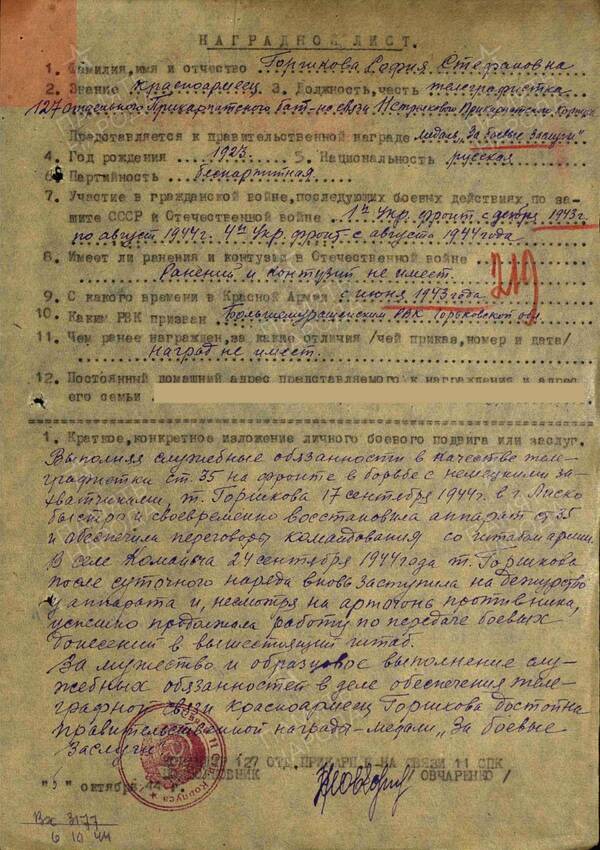 НАГРАДНОЙ ЛИСТ.
1. Фамилия, имя и отчество Горшкова София Степановна
2. Звание Красноармеец 3. Должность, часть телеграфистка
127 отдельного Прикарпатского бат-на связи 11 Стрелкового Прикарпатского Корпуса
Представляется к правительственной награде медаль „За боевые Заслуги"
4. Год рождения 1923 5. Национальность русская
6. Партийность беспартийная
7. Участие в гражданской войне, последующих боевых действиях по за-
щите СССР и Отечественной войне 1й Укр. фронт с декабря 1943 г.
по август 1944 г. 4й Укр. фронт с августа 1944 года
8. Имеет ли ранения и контузии в Отечественной войне
Ранений и контузий не имеет.
219
9. С какого времени в Красной Армии с июня 1943 года
10. Каким РВК призван Большемурашкинским РВК Горьковской обл.
11. Чем ранее награжден, за какие отличия /чей приказ, номер и дата/
наград не имеет.
12. Постоянный домашний адрес представляемого к награждению и адрес
его семьи
1. Краткое, конкретное изложение личного боевого подвига или заслуг.
Выполняя служебные обязанности в качестве теле-
графистки ст. 35 на фронте в борьбе с немецкими за-
хватчиками, т. Горшкова 17 сентября 1944 г. в г. Лиско
быстро и своевременно восстановила аппарат ст 35
и обеспечила переговоры командования со штабом армии.
В селе Команьча 24 сентября 1944 года т. Горшкова
после суточного наряда вновь заступила на дежурство
у аппарата и, несмотря на артогонь противника,
успешно продолжала работу по передаче боевых
донесений в вышестоящий штаб.
За мужество и образцовое выполнение слу-
жебных обязанностей в деле обеспечения теле-
графной связи Красноармеец Горшкова достойна
правительственной награды - медали „За боевые
Заслуги"
127 ОТД. ПРИКАРП. Б-НА СВЯЗИ 11 СПК
ПОДПОЛКОВНИК ОВЧАРЕНКО /
"5" октября 44 г.
Корпуса
Вх 3177
6 10 44